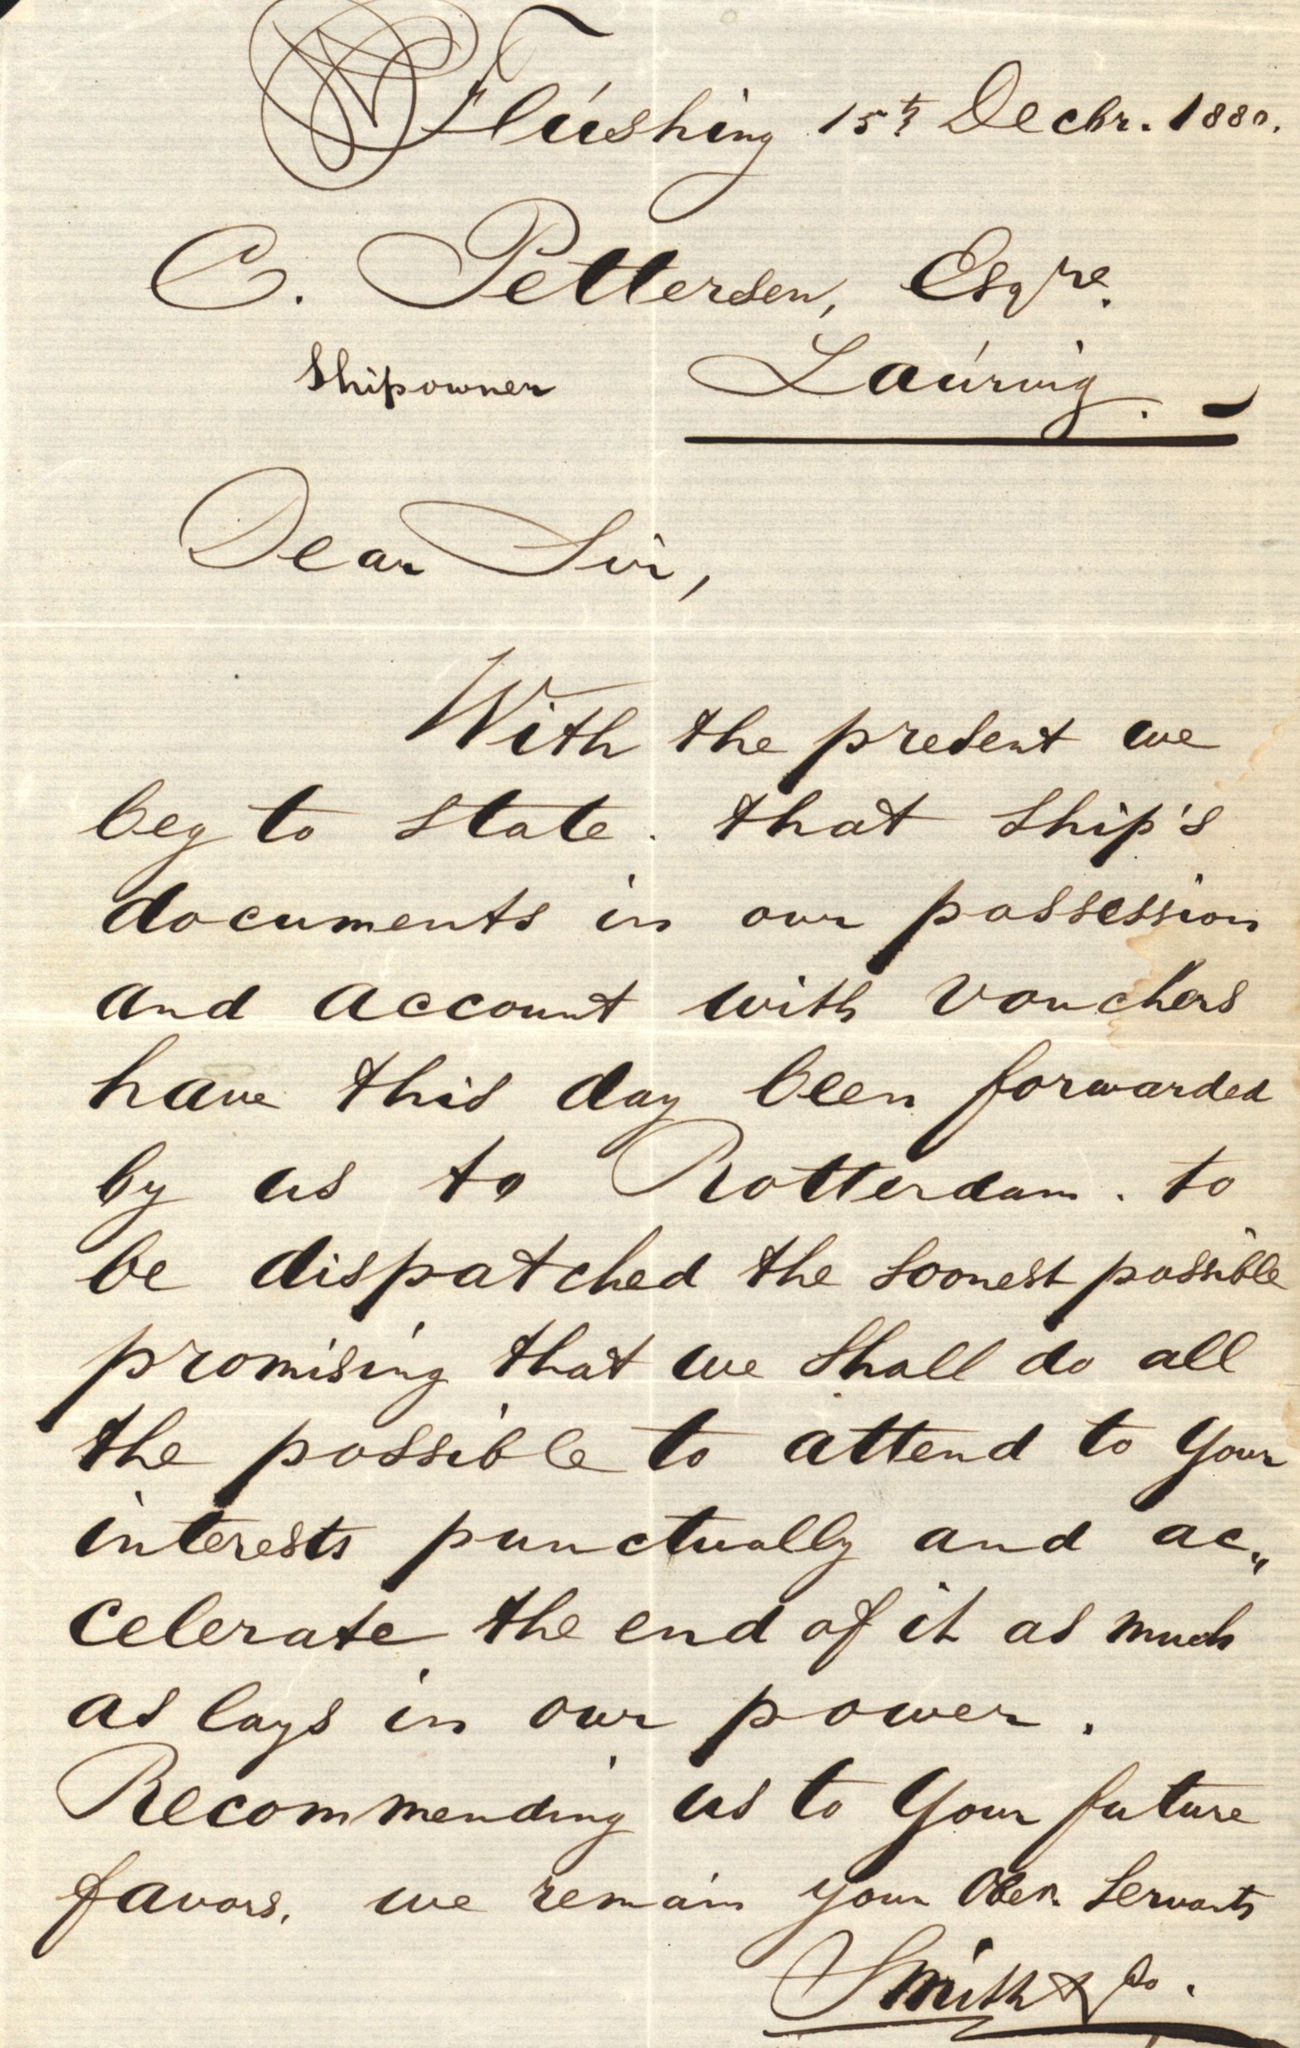 Flúshing 15th Decbr. 1880.
C. Pettersen, Esqre.
Shipowner Laúrvig.
Dear Sir,
With the present we
beg to state. that ship's
documents in our possession
and account with vouchers
have this day been forwarded
by us to Rotterdam. to
be dispatched the soonest possible
promising that we shall do all
the possible to attend to Your
interests punctually and ac„
celerate the end of it as much
as lays in our power.
Recommending us to Your future
favors, we remain your Obedt. Servants
Smith & Co.